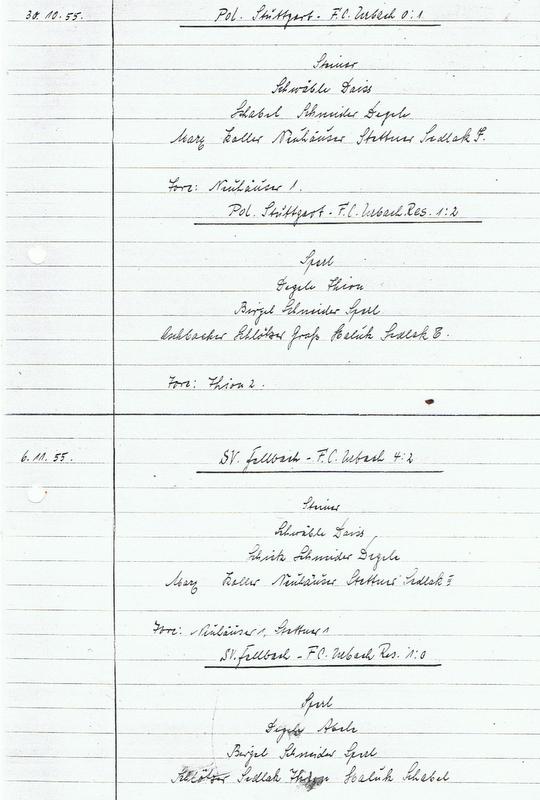 30.10.55.
Pol. Stuttgart - F.C. Urbach 0:1
Steiner
Schwäble Daiss
Schabel Schneider Degele
Marz Haller Neuhäuser Stettner Sedlak F.
Tore: Neuhäuser 1.
Pol. Stuttgart - F.C. Urbach Res. 1:2
Sperl
Degele Thion
Bürgel Schneider Sperl
Aschbacher Schlötzer Groß Haluk Sedlak E.
Tore: Thion 2.
6.11.55.
SV. Fellbach - F.C. Urbach 4:2
Steiner
Schwäble Daiss
Schick Schneider Degele
Marz Haller Neuhäuser Stettner Sedlak F
Tore: Neuhäuser 1, Stettner 1
SV. Fellbach - F.C. Urbach Res. 1:0
Sperl
Degele Abele
Bürgel Schneider Sperl
Schlötzer Sedlak Thion Haluk Schabel